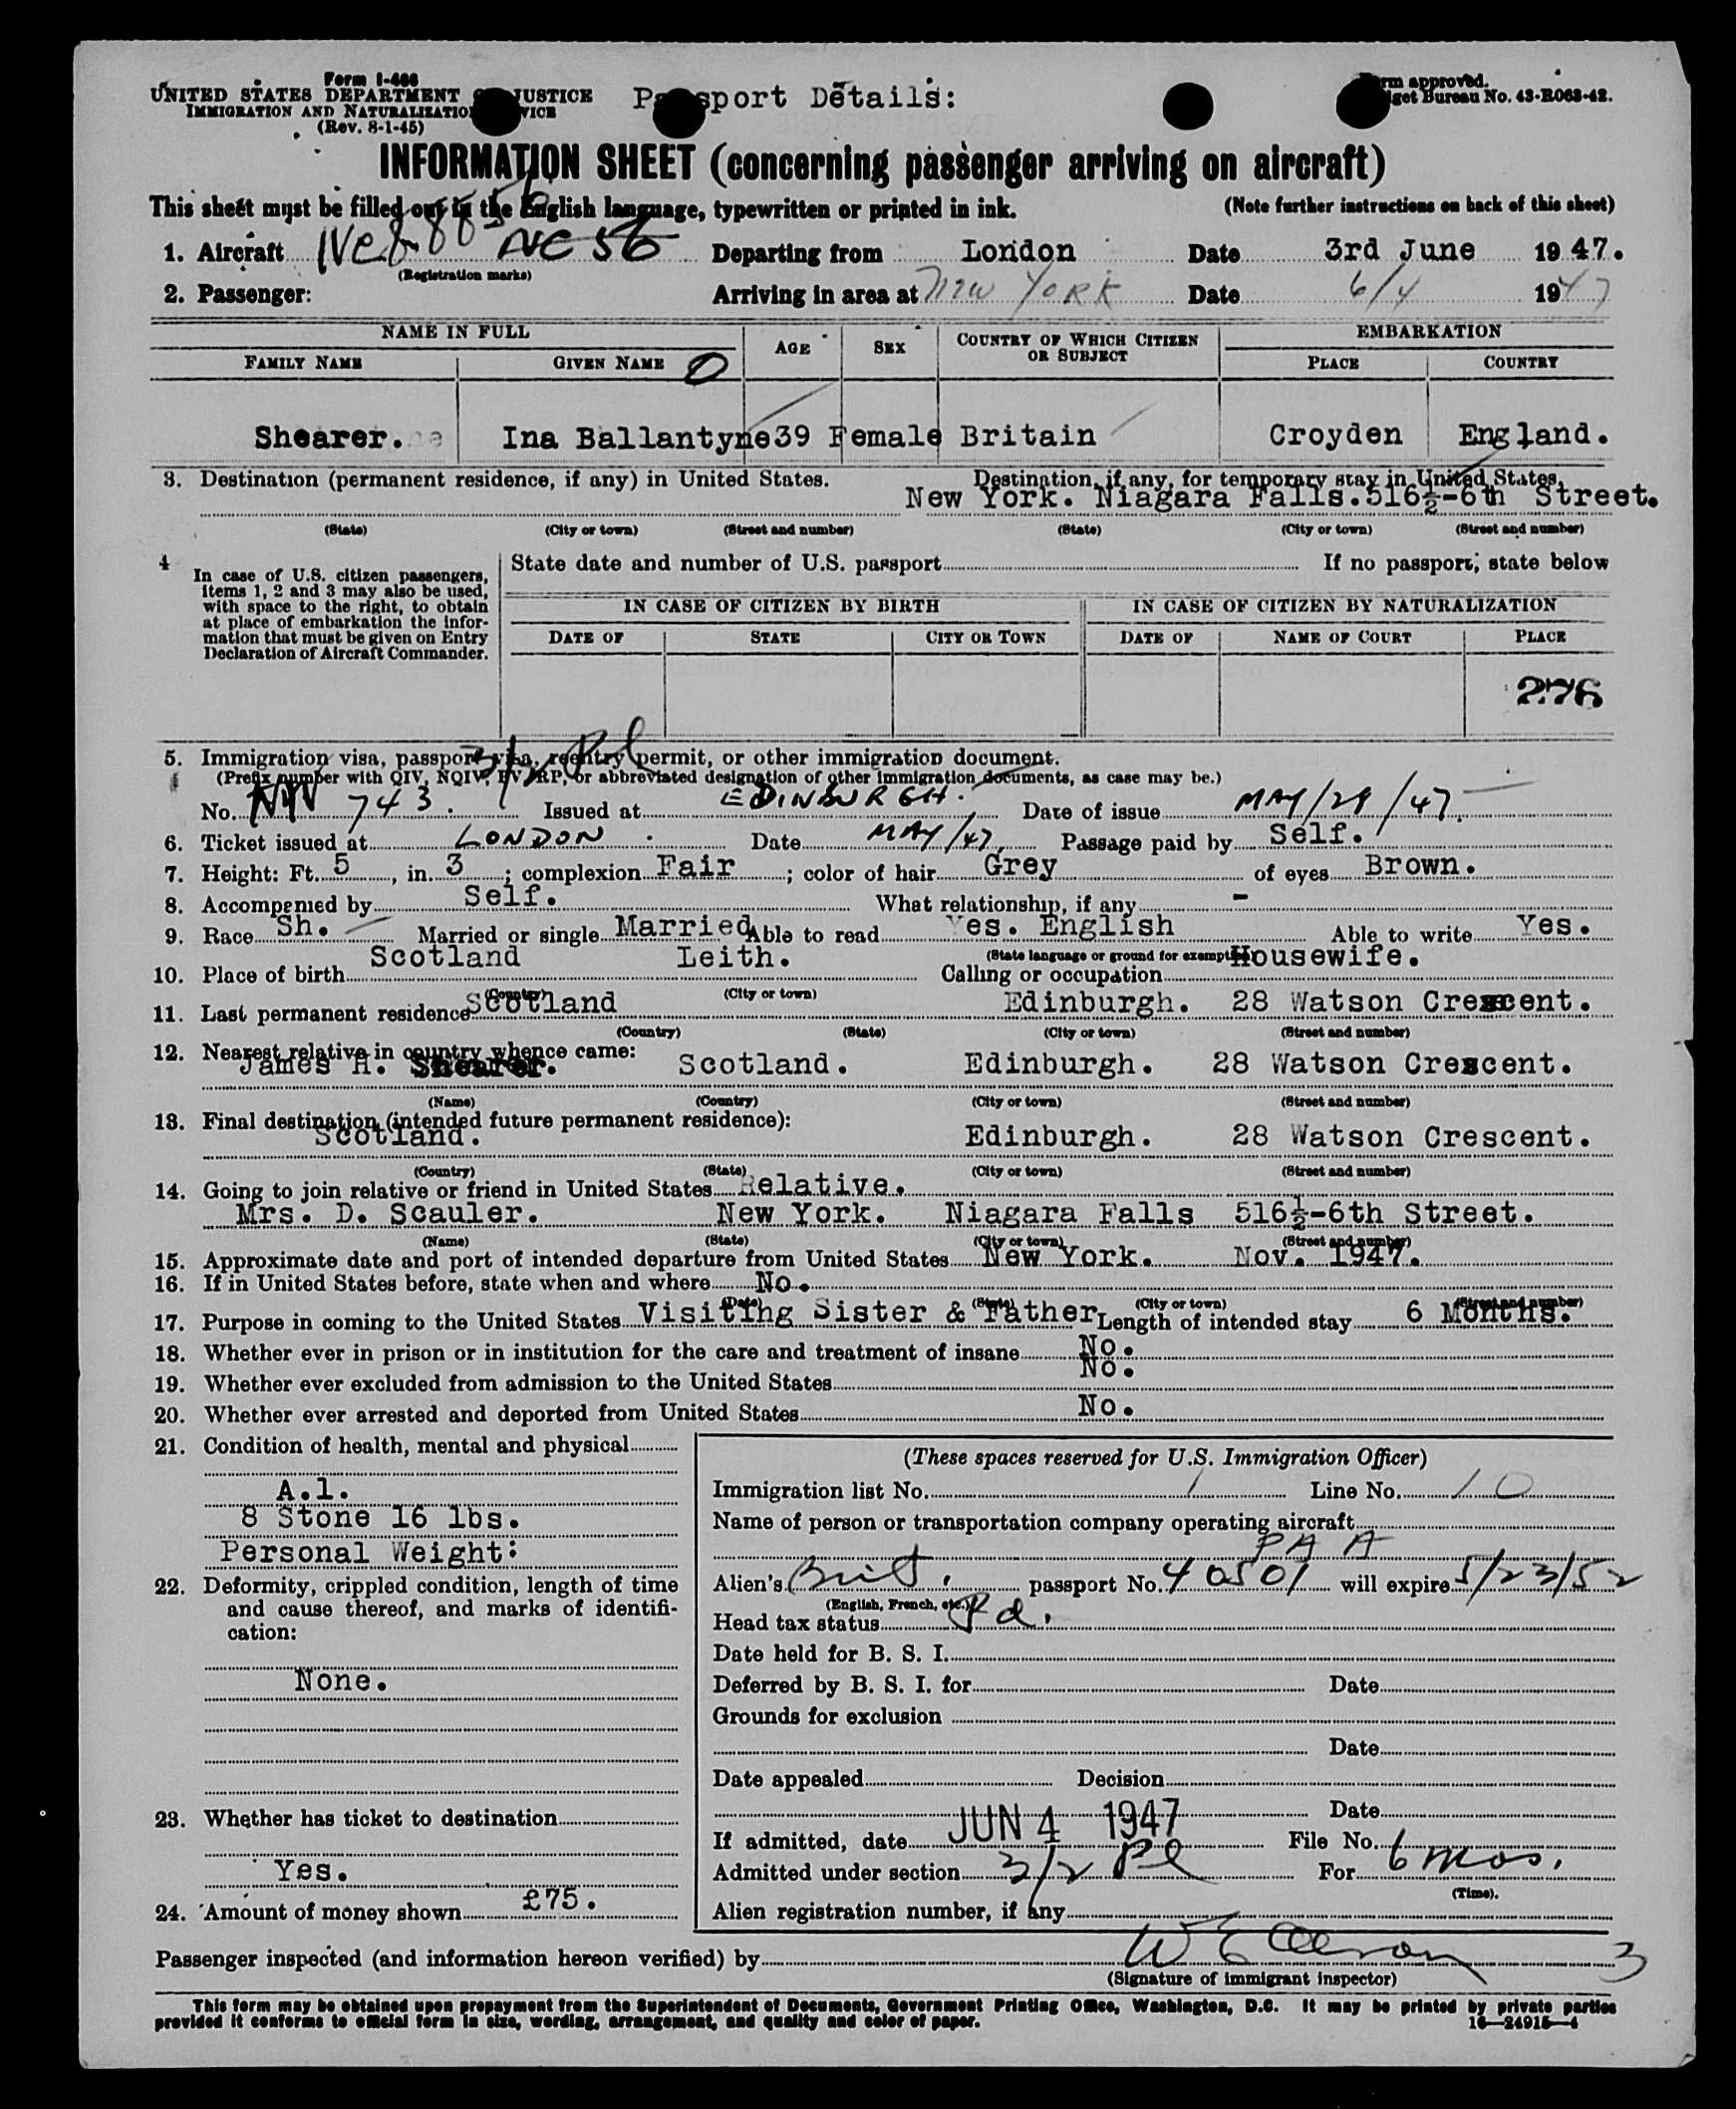 Form I-466
UNITED STATES DEPARTMENT JUSTICE
IMMIGRATION AND NATURALIZATION
(Rev. 8-1-45)
Passport Details:
Form approved.
Budget Bureau No. 43-R063-42.
INFORMATION SHEET (concerning passenger arriving on aircraft)
This sheet must be filled out in the English language, typewritten or printed in ink. (Note further instructions on back of this sheet)
1. Aircraft NC 56 Departing from London Date 3rd June 1947.
(Registration marks)
2. Passenger: Arriving in area at New York Date 6/4 1947
NAME IN FULL AGE SEX COUNTRY OF WHICH CITIZEN OR SUBJECT EMBARKATION
FAMILY NAME GIVEN NAME PLACE COUNTRY
Shearer. Ina Ballantyne 39 Female Britain Croyden England.
3. Destination (permanent residence, if any) in United States. Destination, if any, for temporary stay in United States.
New York. Niagara Falls. 516½-6th Street.
(State) (City or town) (Street and number) (State) (City or town) (Street and number)
4 In case of U.S. citizen passengers, items 1, 2 and 3 may also be used, with space to the right, to obtain at place of embarkation the information that must be given on Entry Declaration of Aircraft Commander.
State date and number of U.S. passport If no passport, state below
IN CASE OF CITIZEN BY BIRTH IN CASE OF CITIZEN BY NATURALIZATION
DATE OF STATE CITY OR TOWN DATE OF NAME OF COURT PLACE
276
3/2 Pl
5. Immigration visa, passport visa, reentry permit, or other immigration document.
(Prefix number with QIV, NQIV, PV, RP, or abbreviated designation of other immigration documents, as case may be.)
No. 743. Issued at EDINBURGH. Date of issue MAY/29/47.
6. Ticket issued at LONDON Date MAY/47, Passage paid by Self.
7. Height: Ft. 5, in. 3; complexion Fair; color of hair Grey of eyes Brown.
8. Accompanied by Self. What relationship, if any -
9. Race Sh. Married or single Married Able to read Yes. English Able to write Yes.
(State language or ground for exemption)
10. Place of birth Scotland Leith. Calling or occupation Housewife.
(Country) (City or town)
11. Last permanent residence Scotland Edinburgh. 28 Watson Crescent.
(Country) (State) (City or town) (Street and number)
12. Nearest relative in country whence came:
James H. Shearer. Scotland. Edinburgh. 28 Watson Crescent.
(Name) (Country) (City or town) (Street and number)
13. Final destination (intended future permanent residence):
Scotland. Edinburgh. 28 Watson Crescent.
(Country) (State) (City or town) (Street and number)
14. Going to join relative or friend in United States Relative.
Mrs. D. Scauler. New York. Niagara Falls 516½-6th Street.
(Name) (State) (City or town) (Street and number)
15. Approximate date and port of intended departure from United States New York. Nov. 1947.
16. If in United States before, state when and where No.
(Date) (State) (City or town) (Street and number)
17. Purpose in coming to the United States Visiting Sister & Father Length of intended stay 6 Months.
18. Whether ever in prison or in institution for the care and treatment of insane No.
19. Whether ever excluded from admission to the United States No.
20. Whether ever arrested and deported from United States No.
21. Condition of health, mental and physical
A.1.
8 Stone 16 lbs.
Personal Weight:
22. Deformity, crippled condition, length of time and cause thereof, and marks of identification:
None.
23. Whether has ticket to destination
Yes.
24. Amount of money shown £75.
(These spaces reserved for U.S. Immigration Officer)
Immigration list No. 1 Line No. 10
Name of person or transportation company operating aircraft
PAA
Alien's Brit. passport No. 40501 will expire 5/23/52
(English, French, etc.)
Head tax status Pd.
Date held for B. S. I.
Deferred by B. S. I. for Date
Grounds for exclusion
Date
Date appealed Decision
Date
If admitted, date JUN 4 1947 File No.
Admitted under section 3/2 Pl For 6 mos.
(Time).
Alien registration number, if any
Passenger inspected (and information hereon verified) by 3
(Signature of immigrant inspector)
This form may be obtained upon prepayment from the Superintendent of Documents, Government Printing Office, Washington, D.C. It may be printed by private parties
provided it conforms to official form in size, wording, arrangement, and quality and color of paper. 16—24915-4